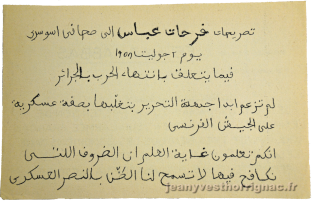 تصريحات فرحات عباس الى صحافي اسوسري
يوم 2 جوليت 1958
فيما يتعلق بانتهاء الحرب بالجزائر
لم تزعم ابدا جبهة التحرير بتغلبها بصفة عسكرية
على الجيش الفرنسي
انكم تعلمون غاية العلم ان الظروف اللتي
نكافح فيها لا تسمح لنا بالنصر العسكري
jeanyvesthorrignac.fr